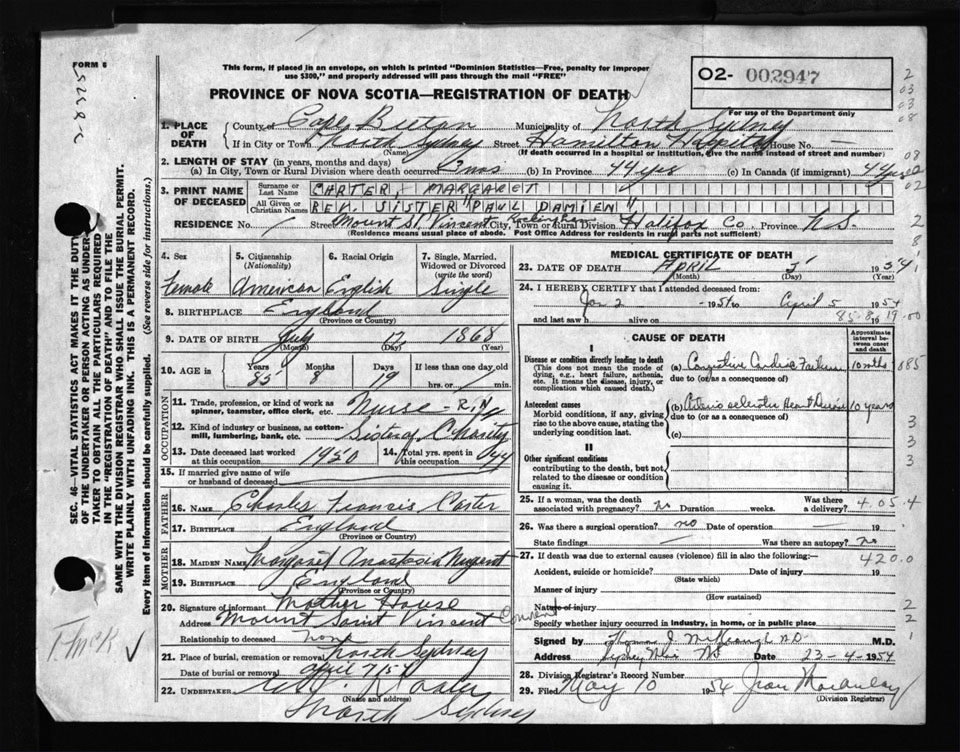 FORM 6
This form, if placed in an envelope, on which is printed "Dominion Statistics—Free, penalty for improper
use $300," and properly addressed will pass through the mail "FREE"
O2- 002947
For use of the Department only
PROVINCE OF NOVA SCOTIA—REGISTRATION OF DEATH
1. PLACE OF DEATH County of Cape Breton Municipality of North Sydney
If in City or Town North Sydney (Name) Street Hamilton Hospital House No. —
(If death occurred in a hospital or institution, give the name instead of street and number)
2. LENGTH OF STAY (in years, months and days)
(a) In City, Town or Rural Division where death occurred 3 mos (b) In Province 44 yrs (c) In Canada (if immigrant) 44 yrs
3. PRINT NAME OF DECEASED Surname or Last Name CARTER, MARGARET
All Given or Christian Names REV. SISTER "PAUL DAMIEN"
RESIDENCE No. Street Mount St. Vincent City, Town or Rural Division Rockingham Halifax Co. Province N.S.
(Residence means usual place of abode. Post Office Address for residents in rural parts not sufficient)
4. Sex Female
5. Citizenship (Nationality) American
6. Racial Origin English
7. Single, Married, Widowed or Divorced (write the word) Single
8. BIRTHPLACE England
(Province or Country)
9. DATE OF BIRTH July (Month) 17 (Day) 1868 (Year)
10. AGE in Years 85 Months 8 Days 19 If less than one day old
hrs. or min.
OCCUPATION
11. Trade, profession or kind of work as spinner, teamster, office clerk, etc. Nurse - R.N.
12. Kind of industry or business, as cotton-mill, lumbering, bank, etc. Sister of Charity
13. Date deceased last worked at this occupation 1950 14. Total yrs. spent in this occupation
15. If married give name of wife or husband of deceased
FATHER
16. NAME Charles Francis Carter
17. BIRTHPLACE England
(Province or Country)
MOTHER
18. MAIDEN NAME Margaret Anastasia Nugent
19. BIRTHPLACE England
(Province or Country)
20. Signature of informant Mother House
Address Mount Saint Vincent Convent
Relationship to deceased none
21. Place of burial, cremation or removal North Sydney
Date of burial or removal april 7/54
22. UNDERTAKER
(Name and address)
North Sydney
MEDICAL CERTIFICATE OF DEATH
23. DATE OF DEATH APRIL (Month) 5 (Day) 1954 (Year)
24. I HEREBY CERTIFY that I attended deceased from:
Jan 2 1954 to April 5 1954
and last saw h alive on 19
85-8-19-00
CAUSE OF DEATH
Approximate interval between onset and death
I
Disease or condition directly leading to death
(This does not mean the mode of dying, e.g., heart failure, asthenia, etc. It means the disease, injury, or complication which caused death.)
(a) Congestive Cardiac Failure 10 mths
due to (or as a consequence of)
Antecedent causes
Morbid conditions, if any, giving rise to the above cause, stating the underlying condition last.
(b) Arterio sclerotic Heart Disease 10 years
due to (or as a consequence of)
(c)
II
Other significant conditions
contributing to the death, but not related to the disease or condition causing it.
25. If a woman, was the death associated with pregnancy? No Duration weeks. Was there a delivery? 4.05.4
26. Was there a surgical operation? no Date of operation — 19
State findings — Was there an autopsy? No
27. If death was due to external causes (violence) fill in also the following:— 420.0
Accident, suicide or homicide? Date of injury 19
(State which)
Manner of injury
(How sustained)
Nature of injury
Specify whether injury occurred in industry, in home, or in public place
Signed by Thomas J. M.D.
Address Sydney Mines NS Date 23-4-1954
28. Division Registrar's Record Number
29. Filed May 10 1954 Jean MacAulay
(Division Registrar)
SEC. 46—VITAL STATISTICS ACT MAKES IT THE DUTY
OF THE UNDERTAKER OR PERSON ACTING AS UNDER-
TAKER TO OBTAIN ALL THE PARTICULARS REQUIRED
IN THE "REGISTRATION OF DEATH" AND TO FILE THE
SAME WITH THE DIVISION REGISTRAR WHO SHALL ISSUE THE BURIAL PERMIT.
WRITE PLAINLY WITH UNFADING INK. THIS IS A PERMANENT RECORD.
Every item of information should be carefully supplied. (See reverse side for instructions.)